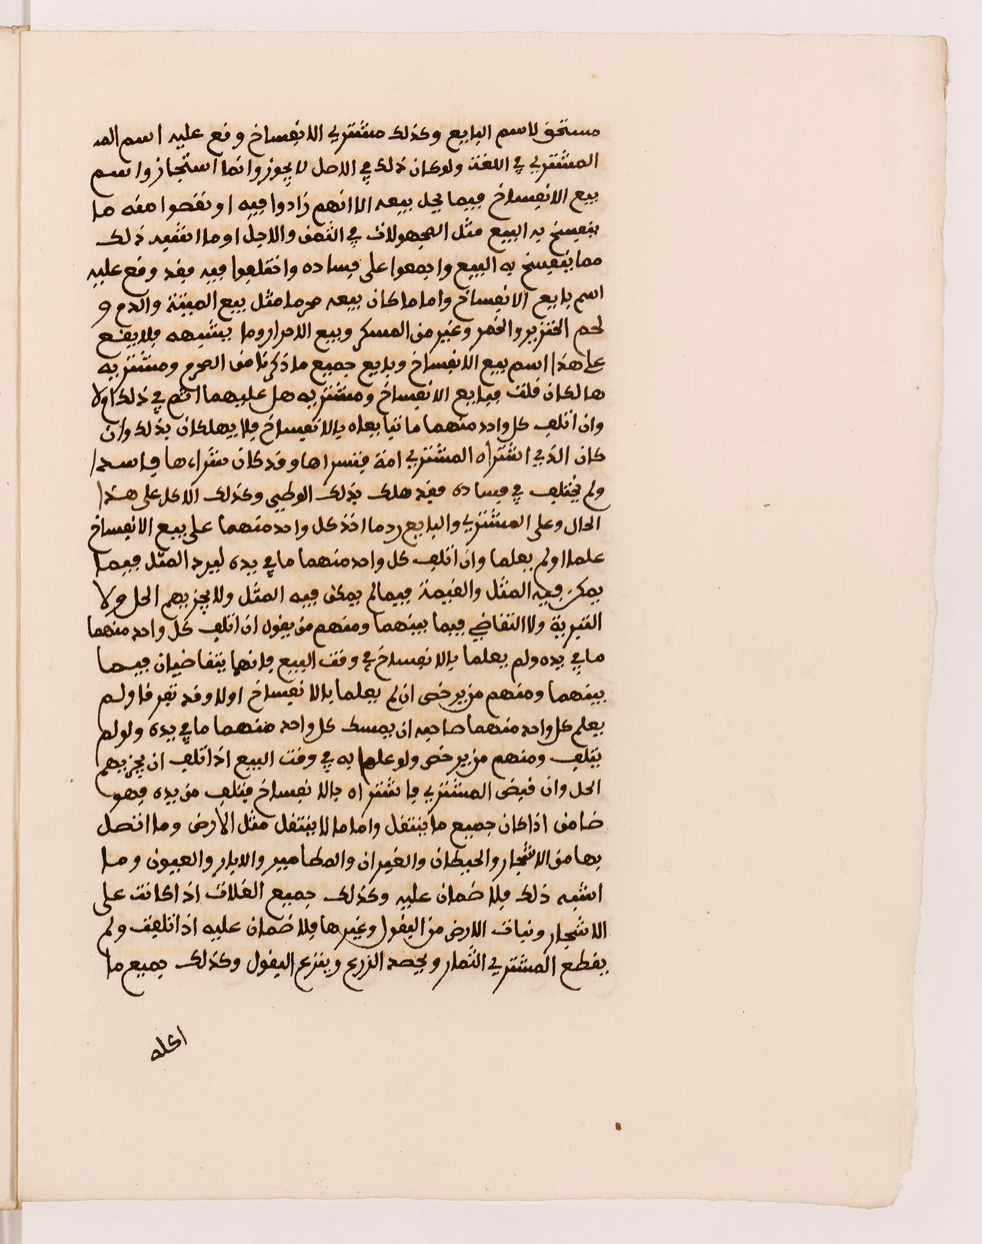 مستحق لاسم البايع وكذلك مشتري الانفساخ وقع عليه اسم المـ
المشتري في اللغة ولو كان ذلك في الاصل لا يجوز وانما استجازوا اسم
بيع الانفساخ فيما يحل بيعه الا انهم زادوا فيه او نقصوا منه ما
ينفسخ به البيع مثل المجهولات في الثمن والاجل او ما اشبه ذلك
مما ينفسخ به البيع واجمعوا على فساده واختلفوا فيه فقد وقع عليه
اسم بايع الانفساخ واما ما كان بيعه حرما مثل بيع الميتة والدم و
لحم الخنزير والخمر وغير من المسكر وبيع الاحرار وما يشبهه فلا يقع
على هذا اسم بيع الانفساخ وبايع جميع ما ذكرنا من الحرم ومشتريه
هالكان قلت فبايع الانفساخ ومشتريه هل عليهما اثم في ذلك اولا
وان اتلف كل واحد منهما ما تبايعاه بالانفساخ فلا يهلكان بذلك وان
كان الذي اشتراه المشتري امة فتسراها وقد كان شراءها فاسدا
ولم يختلف في فساده فقد هلك بذلك الوطيى وكذلك الاكل على هذا
الحال وعلى المشتري والبايع رد ما اخذ كل واحد منهما على بيع الانفساخ
علما اولم يعلما وان اتلف كل واحد منهما ما في يده ليرد المثل فيما
يمكن فيه المثل والقيمة فيما لم يمكن فيه المثل ولا يجزيهم الحل ولا
التبرية ولا التقاضي فيما بينهما ومنهم من يقول ان اتلف كل واحد منهما
ما في يده ولم يعلما بالانفساخ في وقت البيع فانهما يتقاضيان فيما
بينهما ومنهم من يرخص ان لم يعلما بالانفساخ اولا وقد تفرقا ولم
يعلم كل واحد منهما صاحبه ان يمسك كل واحد منهما ما في يده ولو لم
يتلف ومنهم من يرخص ولو علما به في وقت البيع اذا تلف ان يجزيهم
الحل وان قبض المشتري ما اشتراه بالانفساخ فتلف من يده فهو
ضامن اذا كان جميع ما ينتقل واما ما لا ينتقل مثل الارض وما اتصل
بها من الاشجار والحيطان والغيران والمطامير والابار والعيون وما
اشبه ذلك فلا ضمان عليه وكذلك جميع الغلات اذا كانت على
الاشجار ونبات الارض من البقول وغيرها فلا ضمان عليه اذا تلفت ولم
يقطع المشتري الثمار ويحصد الزرع وينزع البقول وكذلك جميع ما
اكله